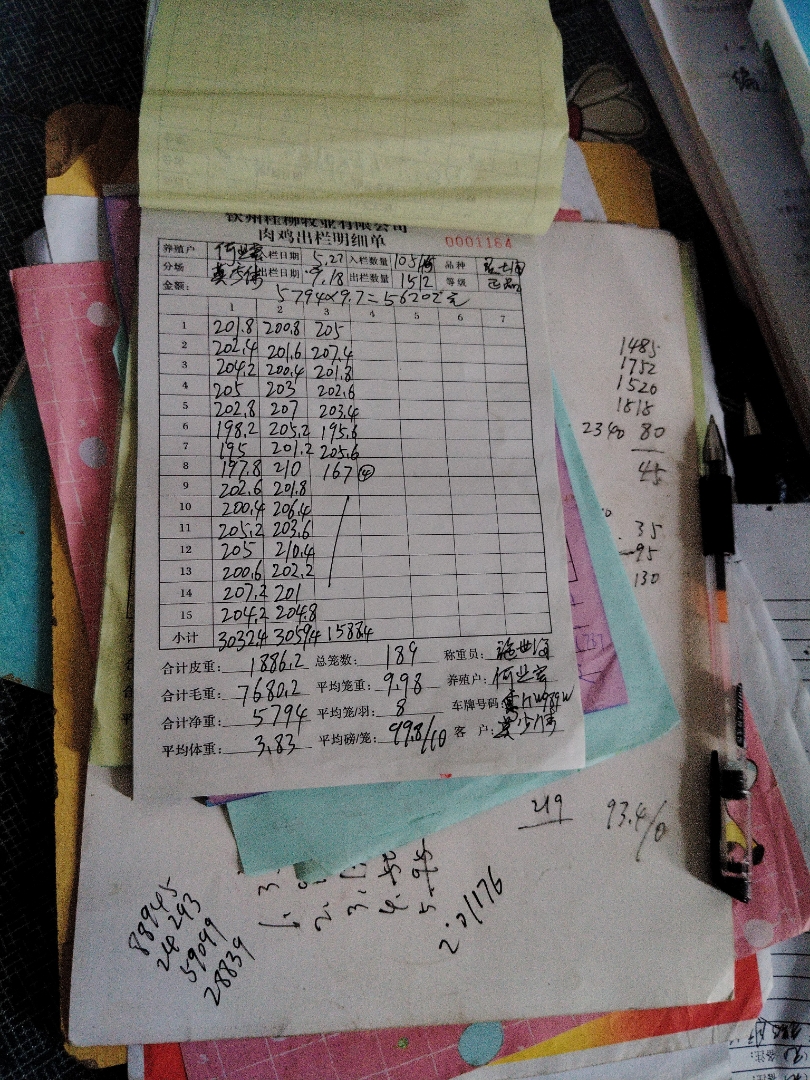 钦州桂柳牧业有限公司
肉鸡出栏明细单 0001164
养殖户 何世宏 入栏日期 5.27 入栏数量 品种
分场 莫少伟 出栏日期 9.18 出栏数量 1512 等级 正品
金额: 5794×9.7=56202元
1 2 3 4 5 6 7
1 201.8 200.8 205
2 202.4 201.6 207.4
3 204.2 200.4 201.8
4 205 203 202.6
5 202.8 207 203.4
6 198.2 205.2 195.6
7 195 201.2 205.6
8 197.8 210 167 ④
9 202.6 201.8
10 200.4 206.4
11 205.2 203.6
12 205 210.4
13 200.6 202.2
14 207.2 201
15 204.2 204.8
小计 3032.4 3059.4 1588.4
合计皮重: 1886.2 总笼数: 189 称重员:
合计毛重: 7680.2 平均笼重: 9.98 养殖户: 何世宏
合计净重: 5794 平均笼/羽: 8 车牌号码:
平均体重: 3.83 平均磅/笼: 99.8/10 客 户: 莫少伟
1485
1752
1520
1818
2340 80
45
35
95
130
219 93.4/0
88945
59099
28839